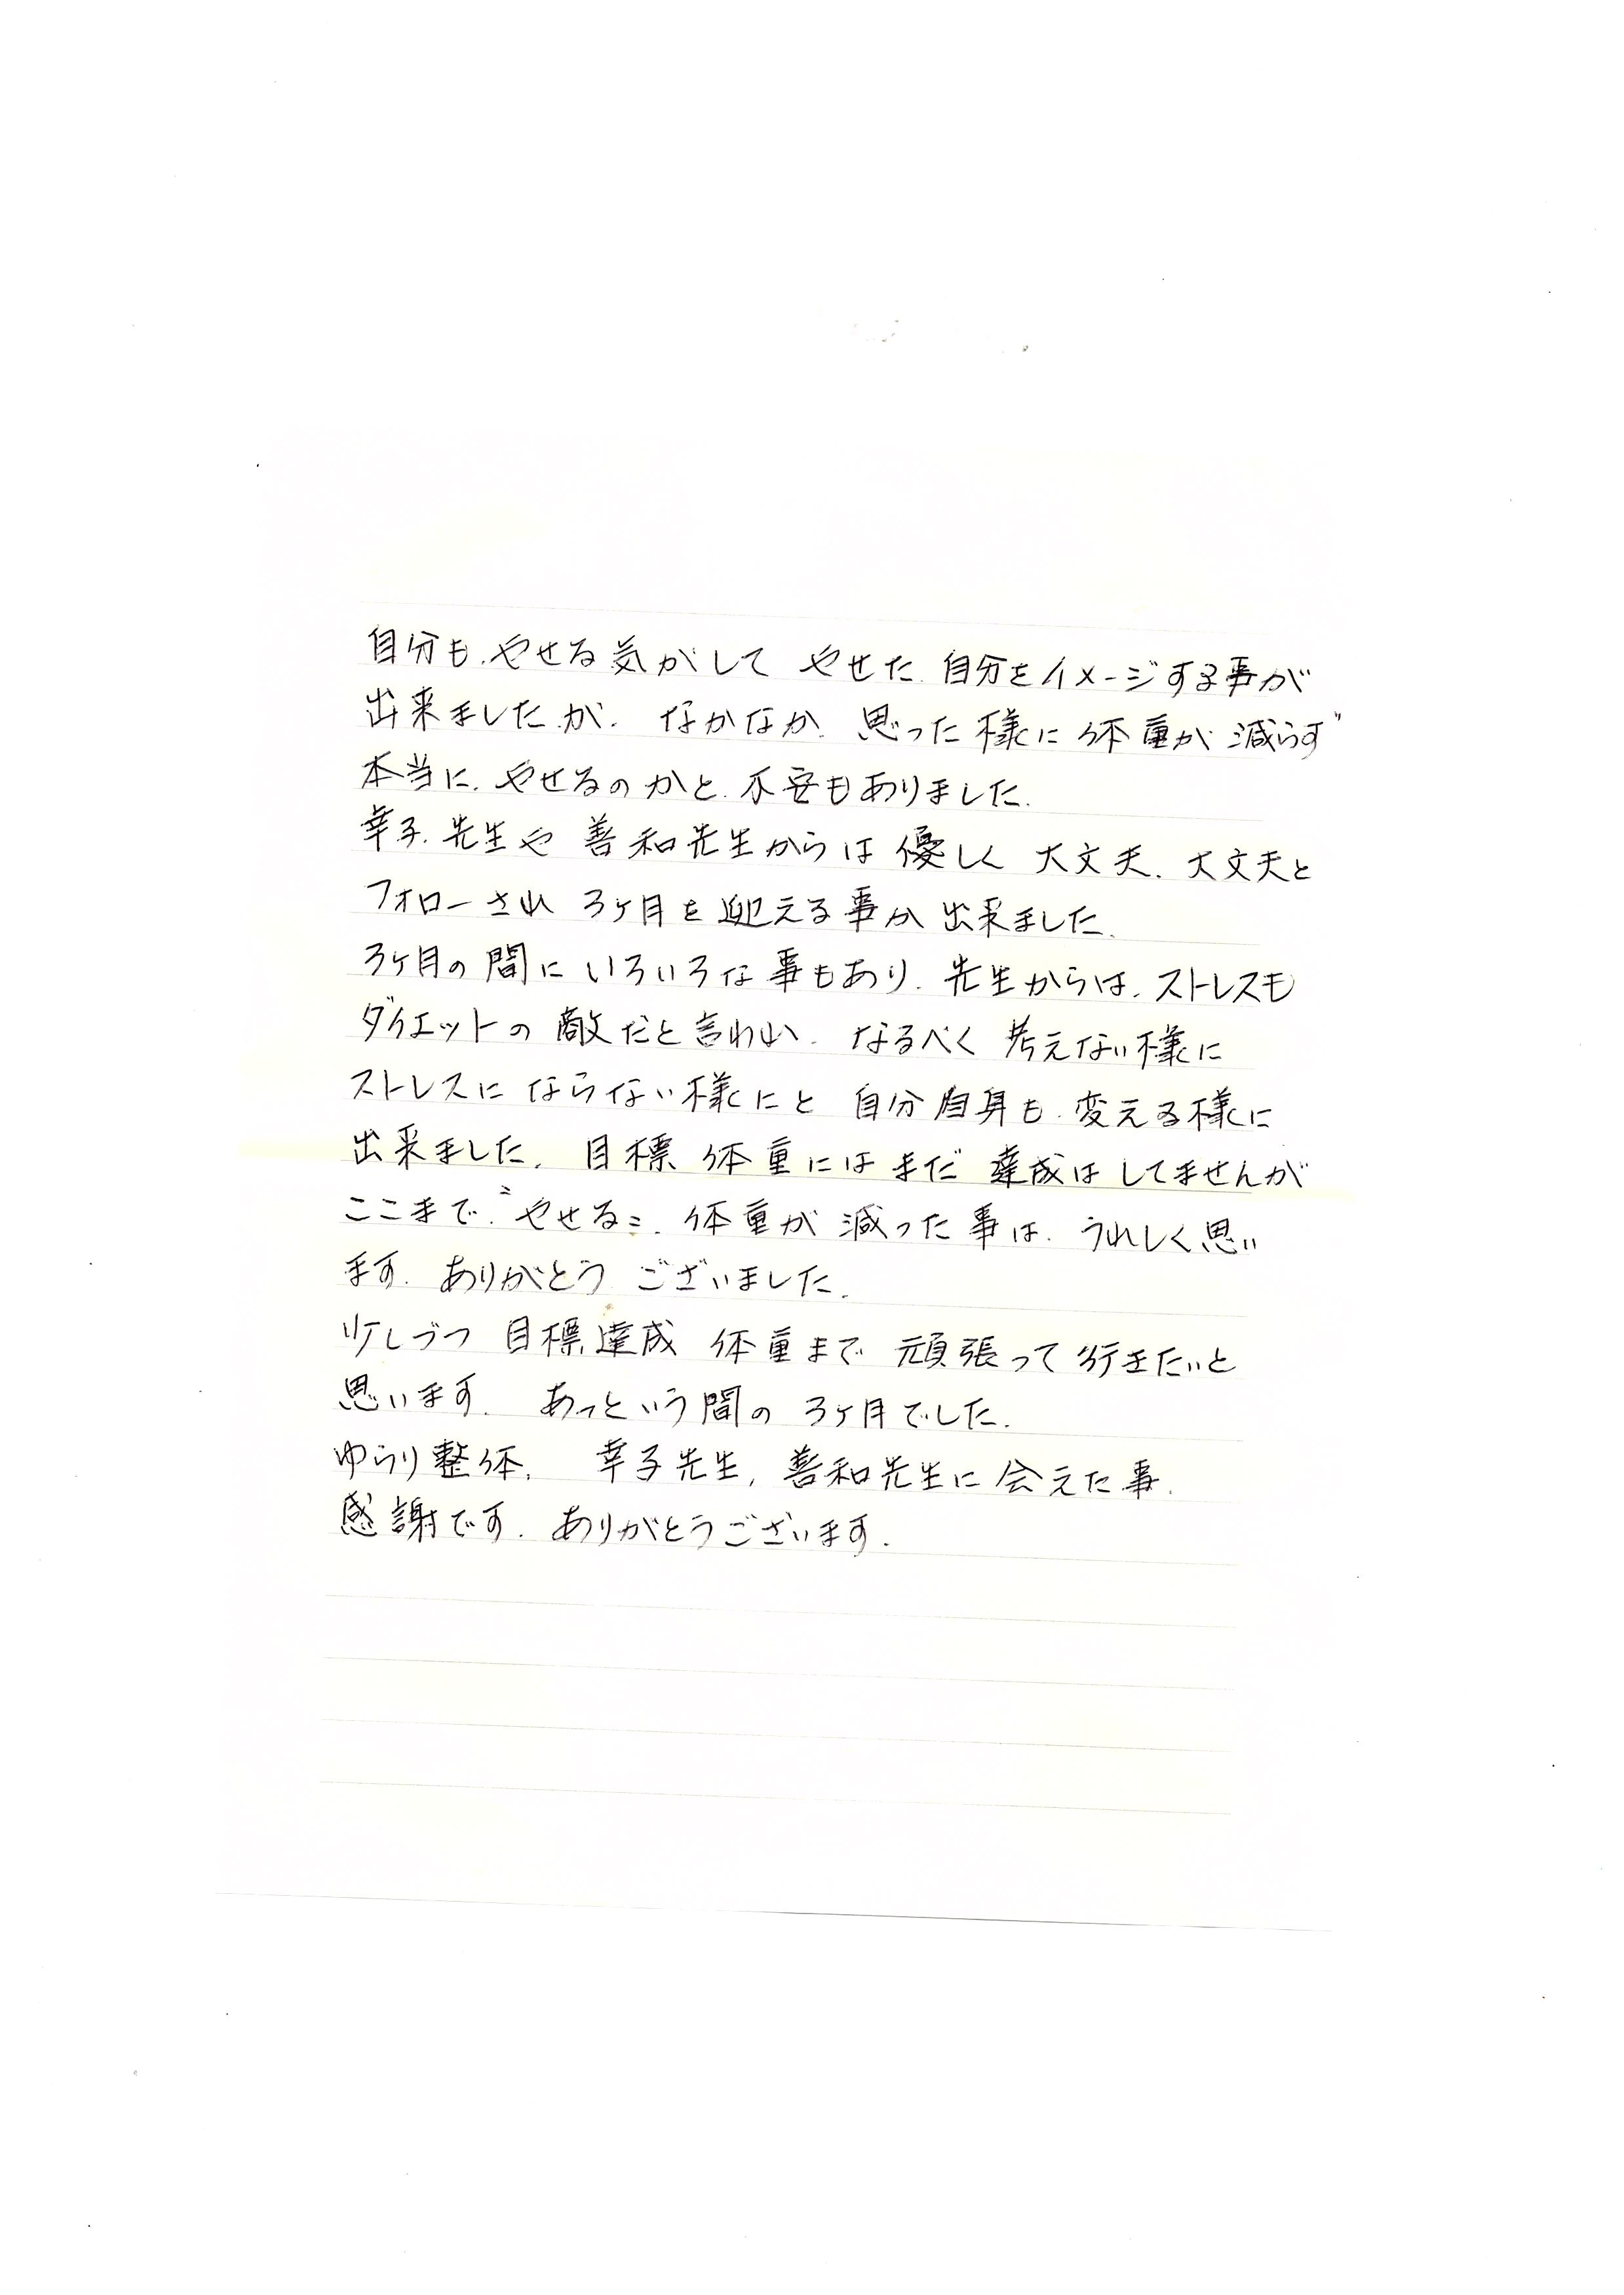 自分も、やせる気がして やせた 自分をイメージする事が
出来ましたが、なかなか、思った様に 体重が 減らず
本当に、やせるのかと、不安もありました。
幸子先生や 善和先生からは 優しく 大丈夫、大丈夫と
フォローされ 3ヶ月を迎える事が 出来ました。
3ヶ月の間に いろいろな事もあり、先生からは、ストレスも
ダイエットの 敵だと言われ、なるべく 考えない様に
ストレスに ならない様にと 自分自身も、変える様に
出来ました。目標 体重には まだ 達成は してませんが
ここまで〝やせる〟、体重が 減った事は、うれしく思い
ます。ありがとう ございました。
少しづつ 目標達成 体重まで 頑張って行きたいと
思います。あっという間の 3ヶ月でした。
ゆらり整体、幸子先生、善和先生に会えた事、
感謝です。ありがとうございます。